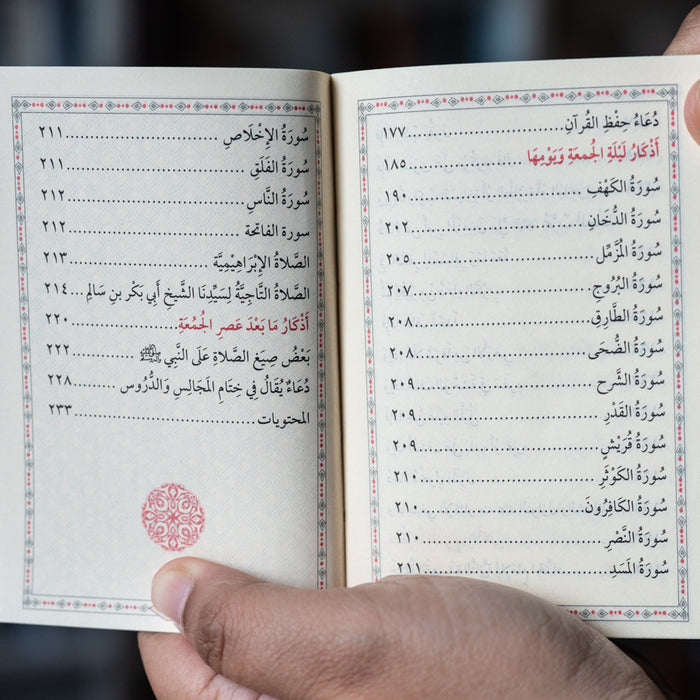 دُعَاءُ حِفْظِ القُرآنِ ............ ١٧٧
أَذْكَارُ لَيْلَةِ الجُمعَةِ وَيَوْمِهَا ............ ١٨٥
سُورَةُ الكَهْفِ ............ ١٩٠
سُورَةُ الدُّخَانِ ............ ٢٠٢
سُورَةُ المُزَّمِّل ............ ٢٠٥
سُورَةُ البُرُوجِ ............ ٢٠٧
سُورَةُ الطَّارِقِ ............ ٢٠٨
سُورَةُ الضُّحَى ............ ٢٠٨
سُورَةُ الشَّرح ............ ٢٠٩
سُورَةُ القَدْرِ ............ ٢٠٩
سُورَةُ قُرَيْشٍ ............ ٢٠٩
سُورَةُ الكَوْثَرِ ............ ٢١٠
سُورَةُ الكَافِرُونَ ............ ٢١٠
سُورَةُ النَّصْرِ ............ ٢١٠
سُورَةُ المَسَدِ ............ ٢١١
سُورَةُ الإِخْلَاصِ ............ ٢١١
سُورَةُ الفَلَقِ ............ ٢١١
سُورَةُ النَّاسِ ............ ٢١٢
سورة الفاتحة ............ ٢١٢
الصَّلاةُ الإِبْرَاهِيْمِيَّة ............ ٢١٣
الصَّلاةُ التَّاجِيَّةُ لِسَيِّدِنَا الشَّيخِ أَبِي بَكْر بنِ سَالِمٍ ... ٢١٤
أَذْكَارُ مَا بَعْدَ عَصرِ الجُمُعَةِ ............ ٢٢٠
بَعْضُ صِيَغِ الصَّلاةِ عَلَى النَّبِي ﷺ ............ ٢٢٢
دُعَاءٌ يُقَالُ فِي خِتَامِ المَجَالِسِ وَالدُّرُوس ............ ٢٢٨
المحتويات ............ ٢٣٣